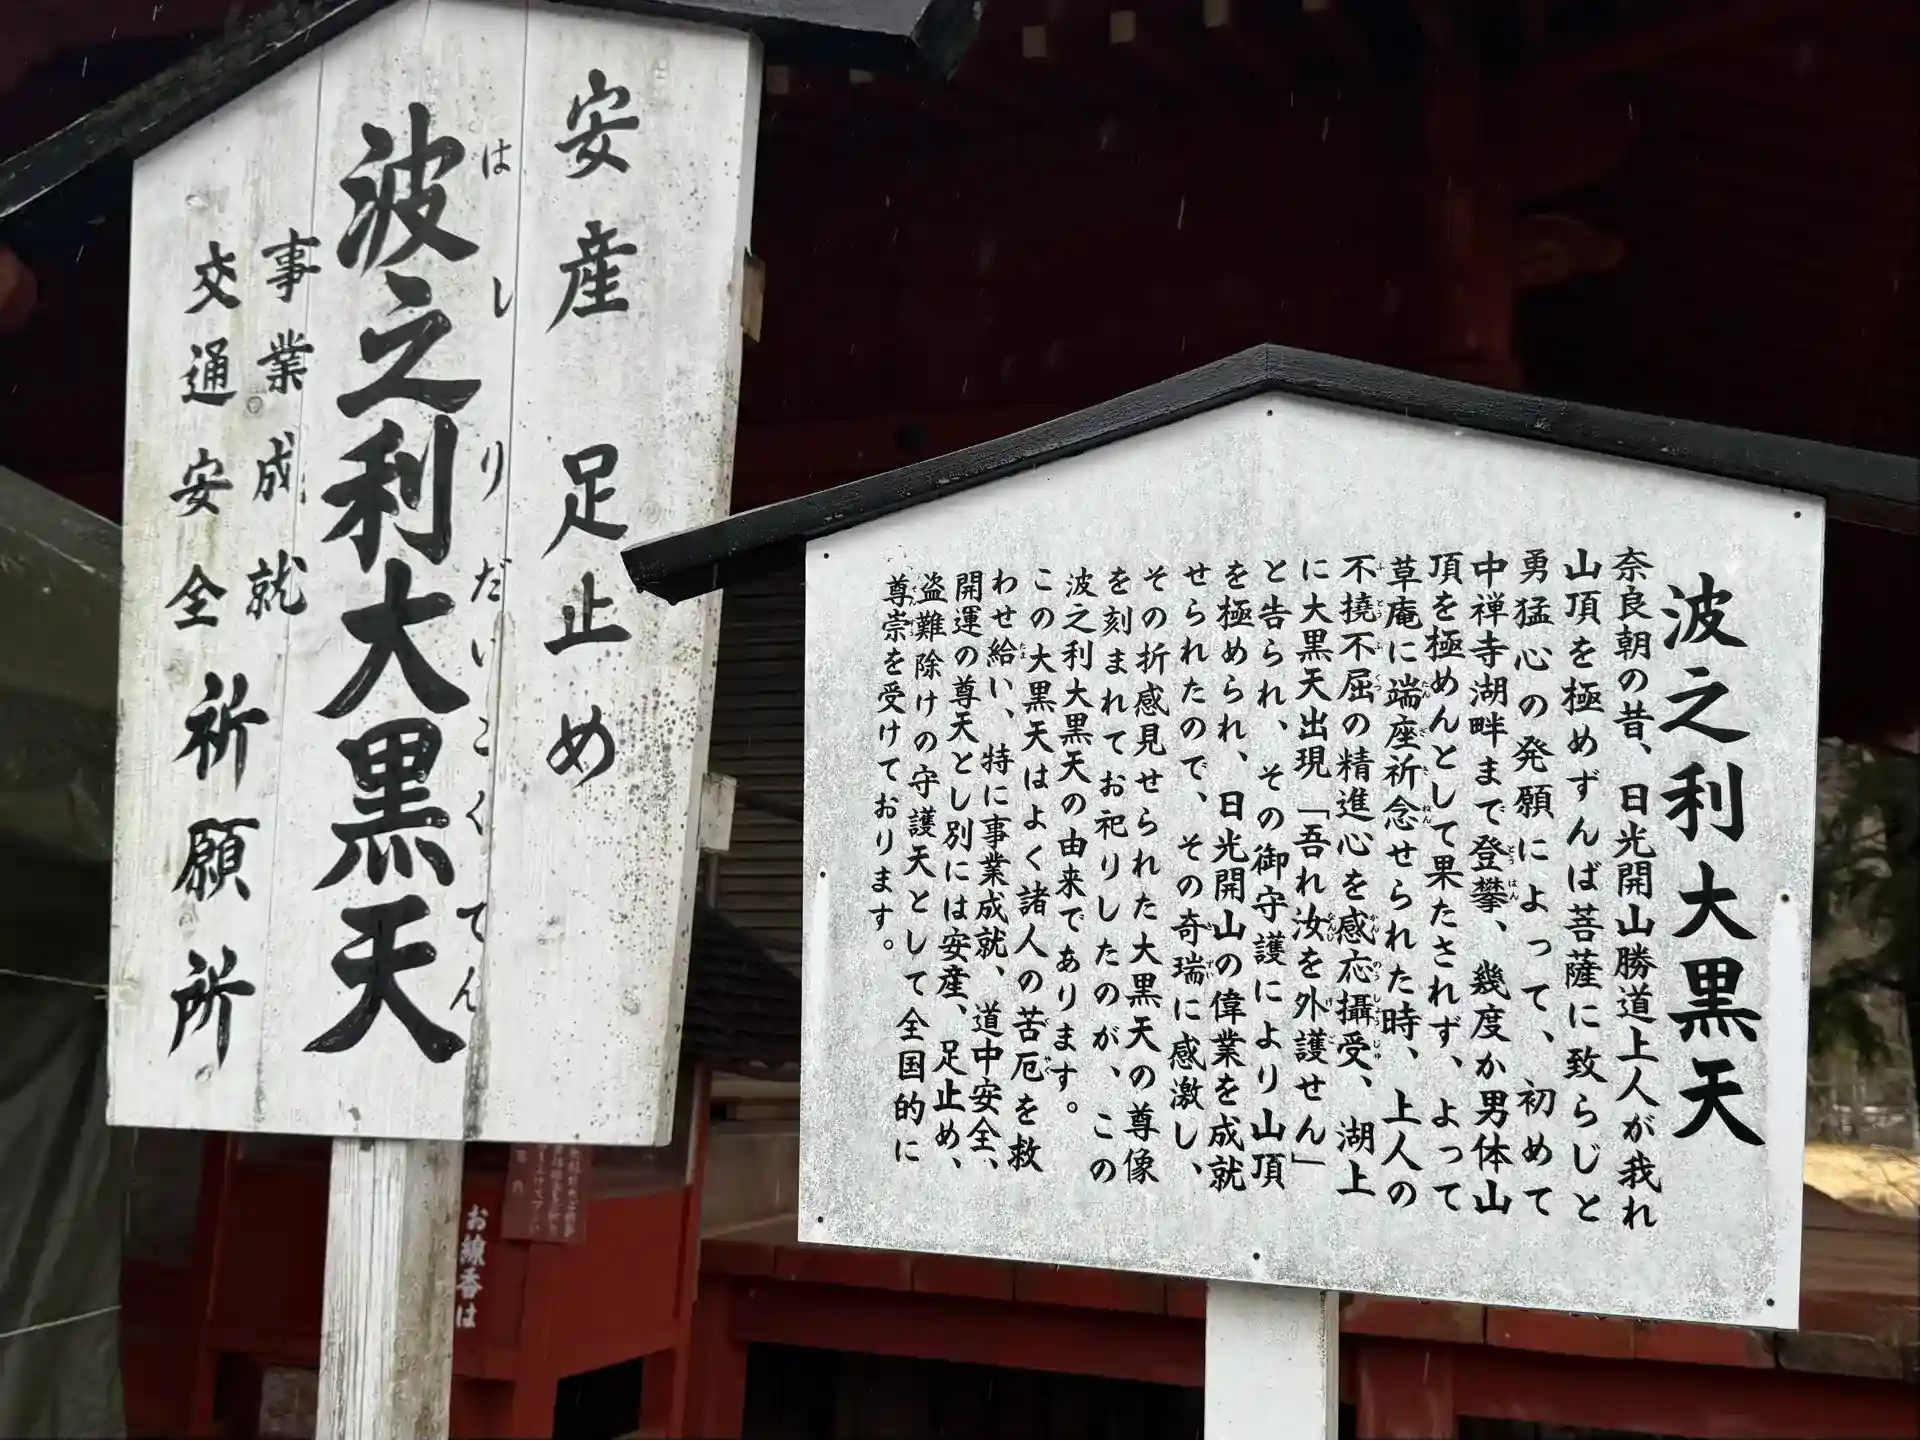 安産 足止め
はしりだいこくてん
波之利大黒天
事業成就
交通安全
祈願所
波之利大黒天
奈良朝の昔、日光開山勝道上人が我れ
山頂を極めずんば菩薩に致らじと
勇猛心の発願によって、初めて
中禅寺湖畔まで登攀、幾度か男体山
頂を極めんとして果たされず、よって
草庵に端座祈念せられた時、上人の
不撓不屈の精進心を感応攝受、湖上
に大黒天出現「吾れ汝を外護せん」
と告られ、その御守護により山頂
を極められ、日光開山の偉業を成就
せられたので、その奇瑞に感激し、
その折感見せられた大黒天の尊像
を刻まれてお祀りしたのが、この
波之利大黒天の由来であります。
この大黒天はよく諸人の苦厄を救
わせ給い、特に事業成就、道中安全、
開運の尊天とし別には安産、足止め、
盗難除けの守護天として全国的に
尊崇を受けております。
お線香は